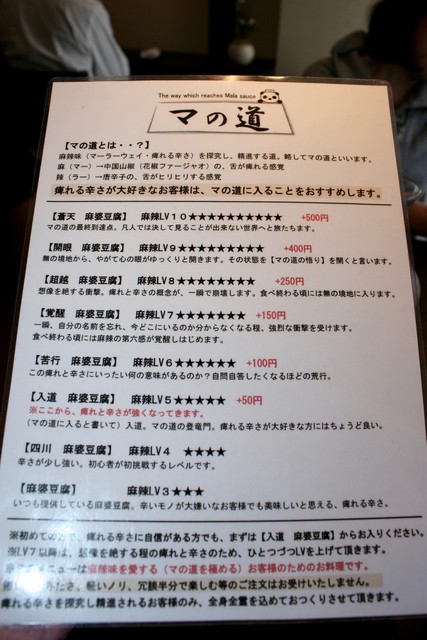 The way which reaches Mala sauce
マの道
【マの道とは・・？】
麻辣味（マーラーウェイ・痺れる辛さ）を探究し、精進する道。略してマの道といいます。
麻（マー）→中国山椒（花椒ファージャオ）の、舌が痺れる感覚
辣（ラー）→唐辛子の、舌がヒリヒリする感覚
痺れる辛さが大好きなお客様は、マの道に入ることをおすすめします。
【蒼天　麻婆豆腐】　麻辣LV１０★★★★★★★★★★　+500円
マの道の最終到達点。凡人では決して見ることが出来ない世界へと旅たちます。
【開眼　麻婆豆腐】　麻辣LV９★★★★★★★★★　+400円
無の境地から、やがて心の眼がゆっくりと開きます。その状態を【マの道の悟り】を開くと言います。
【超越　麻婆豆腐】　麻辣LV８★★★★★★★★　+250円
想像を絶する衝撃。痺れと辛さの概念が、一瞬で崩壊します。食べ終わる頃には無の境地に入ります。
【覚醒　麻婆豆腐】　麻辣LV７★★★★★★★　+150円
一瞬、自分の名前を忘れ、今どこにいるのか分からなくなる程、強烈な衝撃を受けます。
食べ終わる頃には麻辣の第六感が覚醒しはじめます。
【苦行　麻婆豆腐】　麻辣LV６★★★★★★　+100円
この痺れと辛さにいったい何の意味があるのか？自問自答したくなるほどの荒行。
【入道　麻婆豆腐】　麻辣LV５★★★★★　+50円
※ここから、痺れと辛さが強くなってきます。
（マの道に入ると書いて）入道。マの道の登竜門。痺れる辛さが大好きな方にはちょうど良い。
【四川　麻婆豆腐】　麻辣LV４　★★★★
辛さが少し強い。初心者が初挑戦するレベルです。
【麻婆豆腐】　麻辣LV３★★★
いつも提供している麻婆豆腐。辛いモノが大嫌いなお客様でも美味しいと思える、痺れる辛さ。
※初めての方で、痺れる辛さに自信がある方でも、まずは【入道　麻婆豆腐】からお入りください。
※LV７以降は、想像を絶する程の痺れと辛さのため、ひとつづつLVを上げて頂きます。
メニューは麻辣味を愛する（マの道を極める）お客様のためのお料理です。
軽いノリ、冗談半分で楽しむ等のご注文はお受けいたしません。
痺れる辛さを探究し精進されるお客様のみ、全身全霊を込めておつくりさせて頂きます。